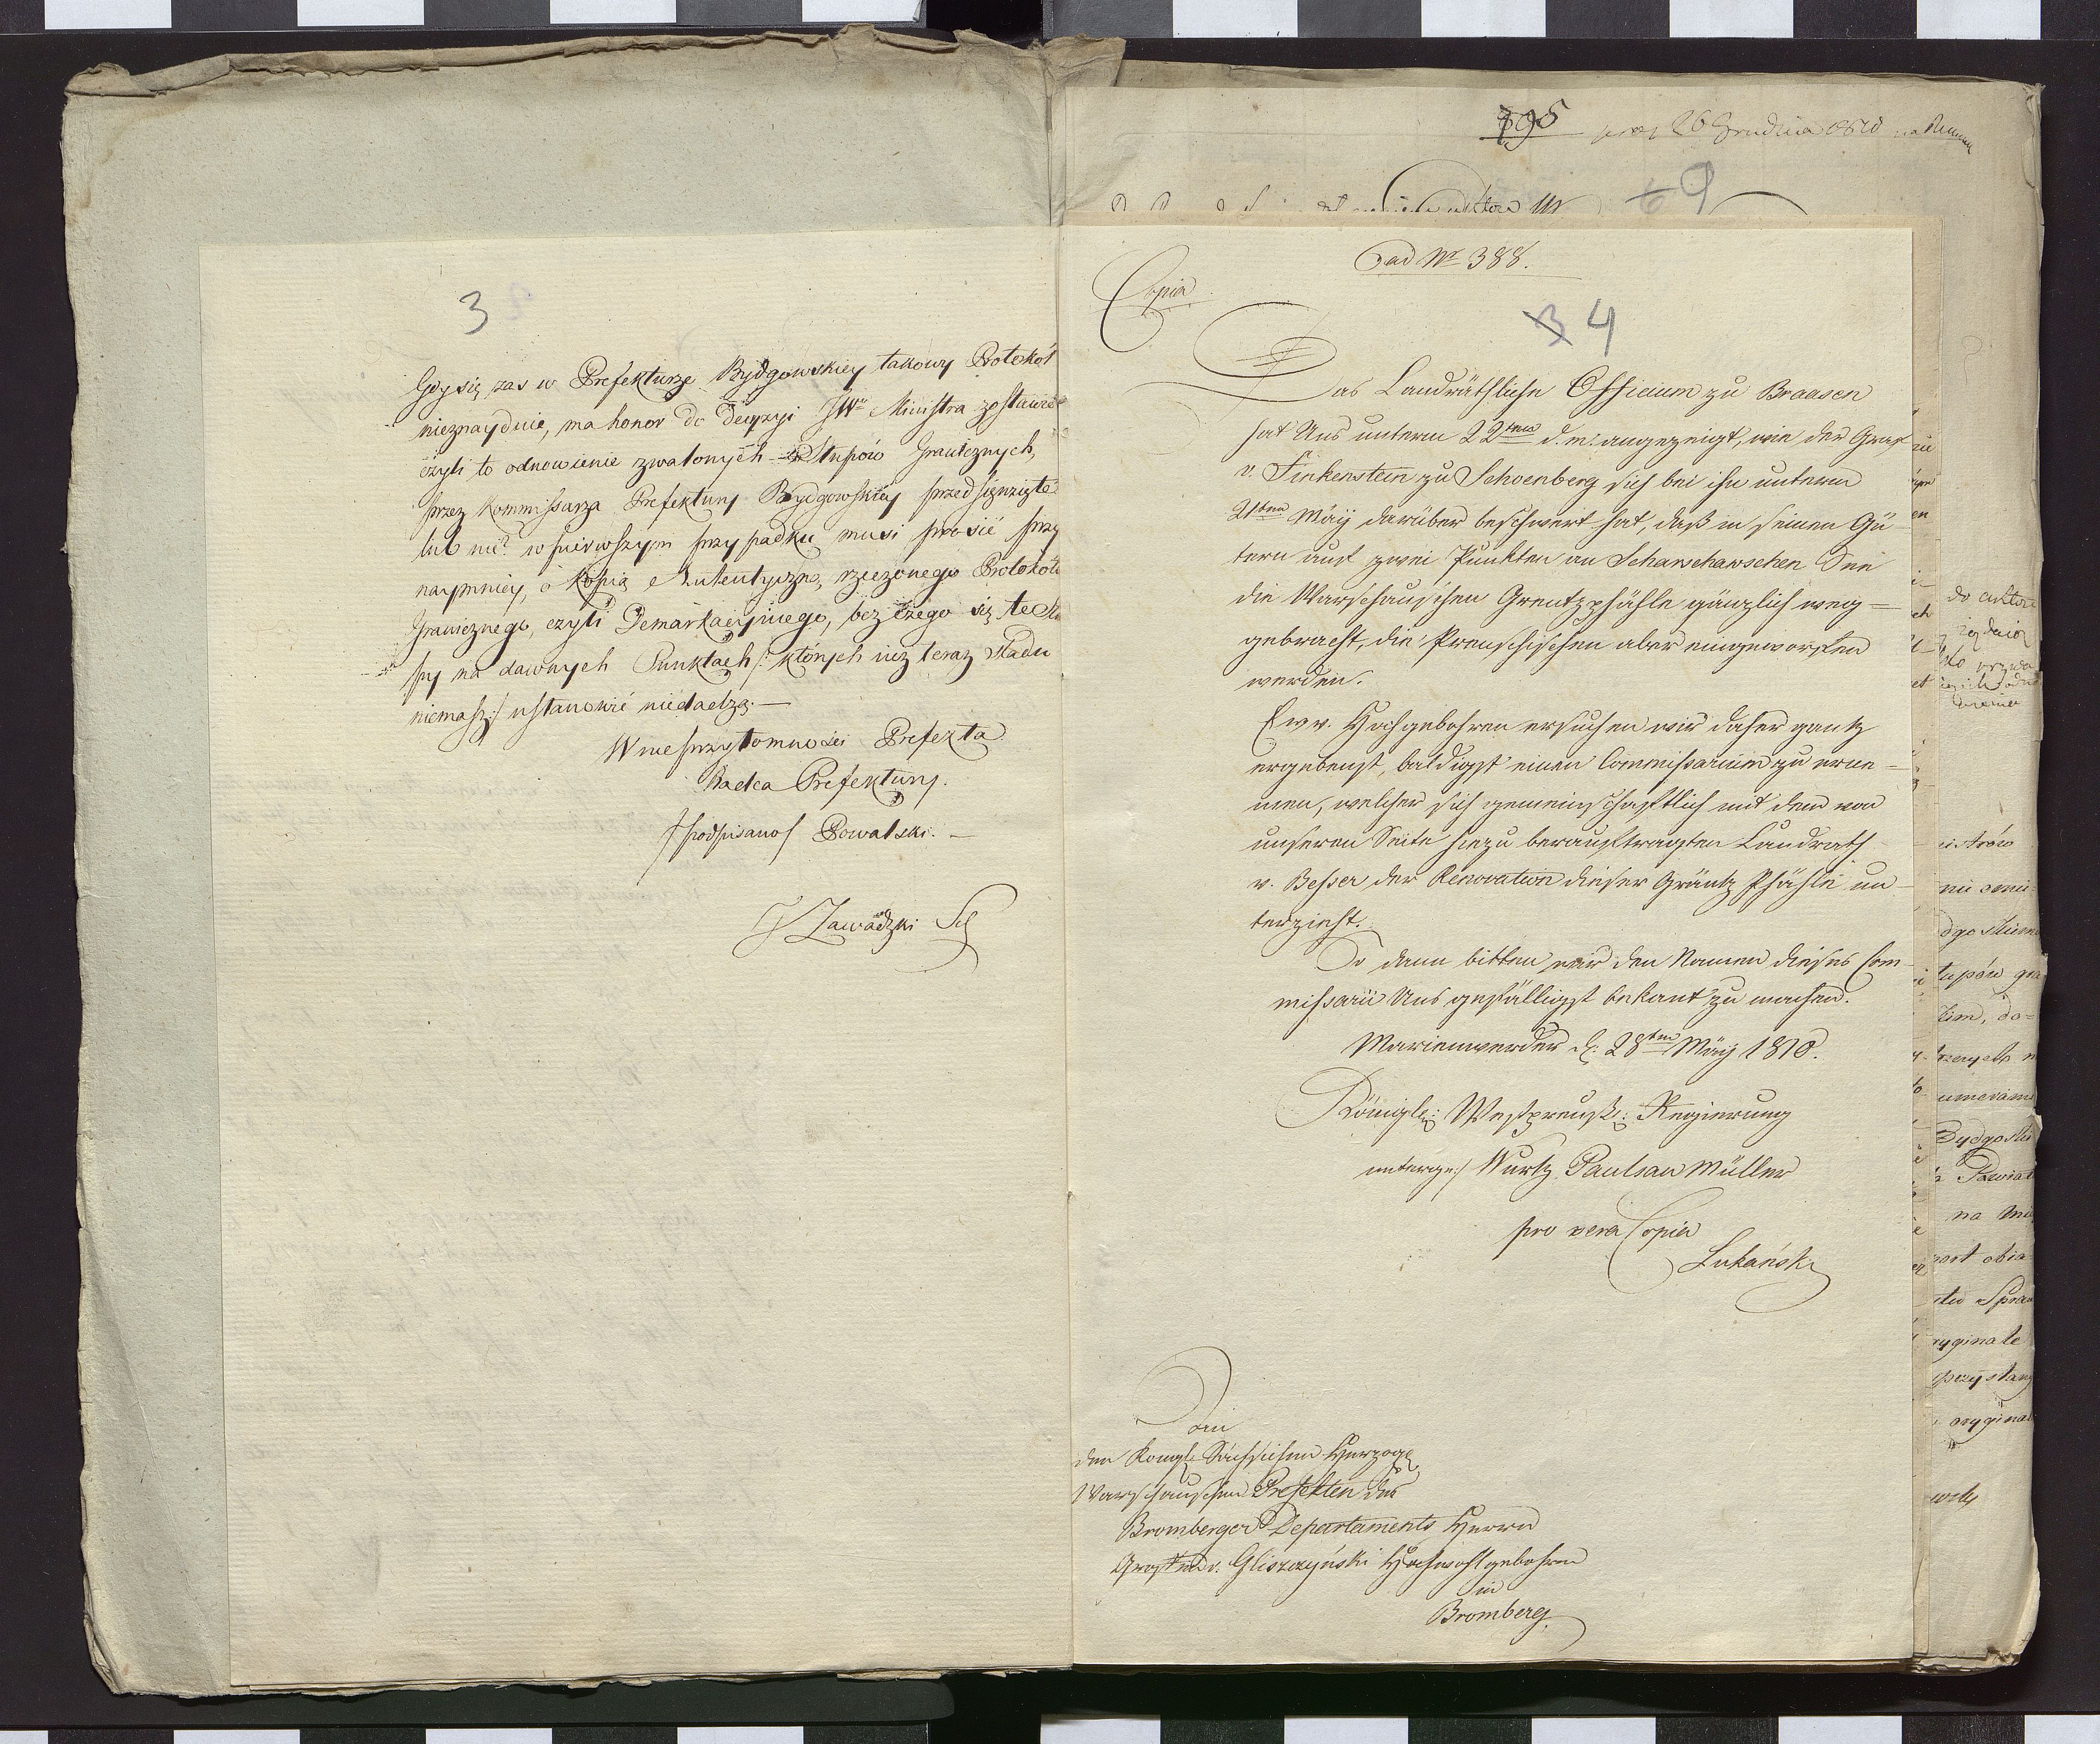 3
Gdy się zas w Prefekturze Bydgowskiey takowy Protokół
nieznayduie, ma honor do Decyzyi JWgo Ministra zostawić
czyli to odnowienie zwalonych Słupów Granicznych,
przez Kommissarza Prefektury Bydgowskiey przedsięwzięte
lub nie? w pierwszym przypadku musi prosić przy
naymniey, o Kopią Autentyczną, rzeczonego Protokołu
Granicznego, czyli Demarkacyinego, bez czego się te Słu
py na dawnych Punktach /: których iuż teraz śladu
niemasz :/ ustanowić niedadzą. —
W nieprzytomności Prefekta
Radca Prefektury.
/podpisano/ Powalski. —
Zawadzki
195
26 Grudnia
69
ad Nr 388.
Copia
3 4
Das Landräthliche Officium zu Braasen
hat Uns unterm 22ten d. m. angezeigt, wie der Graf
v. Finkenstein zu Schoenberg sich bei ihm unterm
21ten May darüber beschwert hat, daß in seinen Gü
tern auf zwei Punkten am Scharschawschen See
die Warschauschen Grentzpfähle gänzlich weg =
gebracht, die Preuschischen aber eingeworfen
werden.
Ewr. Hochgebohren ersuchen wir daher gantz
ergebenst, baldigst einen Commissarium zu erne =
nnen, welcher sich gemeinschaftlich mit dem von
unserer Seite hiezu beauftragten Landrath
v. Besser der Renovation dieser Gräntz Pfähle un
terzieht.
So dann bitten wir den Namen dieses Com
missarii Uns gefälligst bekant zu machen.
Marienwerder d. 28ten May 1810.
Königl: Westpreuß: Regierung
unterge:/ Wurtz Paulsau Müller
pro vera Copia
Lukański
An
den Königl. Sächsischen Herzogl
Warschauschen Prefekten des
Bromberger Departements Herrn
Grafen v. Gliszczyński Hochwohlgebohren
in
Bromberg.